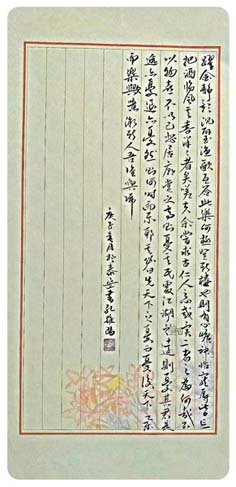 躍金靜影沉璧漁歌互答此樂何極登斯樓也則有心曠神怡寵辱皆忘
把酒臨風其喜洋洋者矣嗟夫余嘗求古仁人之心或異二者之為何哉不
以物喜不以己悲居廟堂之高則憂其民處江湖之遠則憂其君是
進亦憂退亦憂然則何時而樂耶其必曰先天下之憂而憂後天下之樂
而樂歟噫微斯人吾誰與歸
庚子